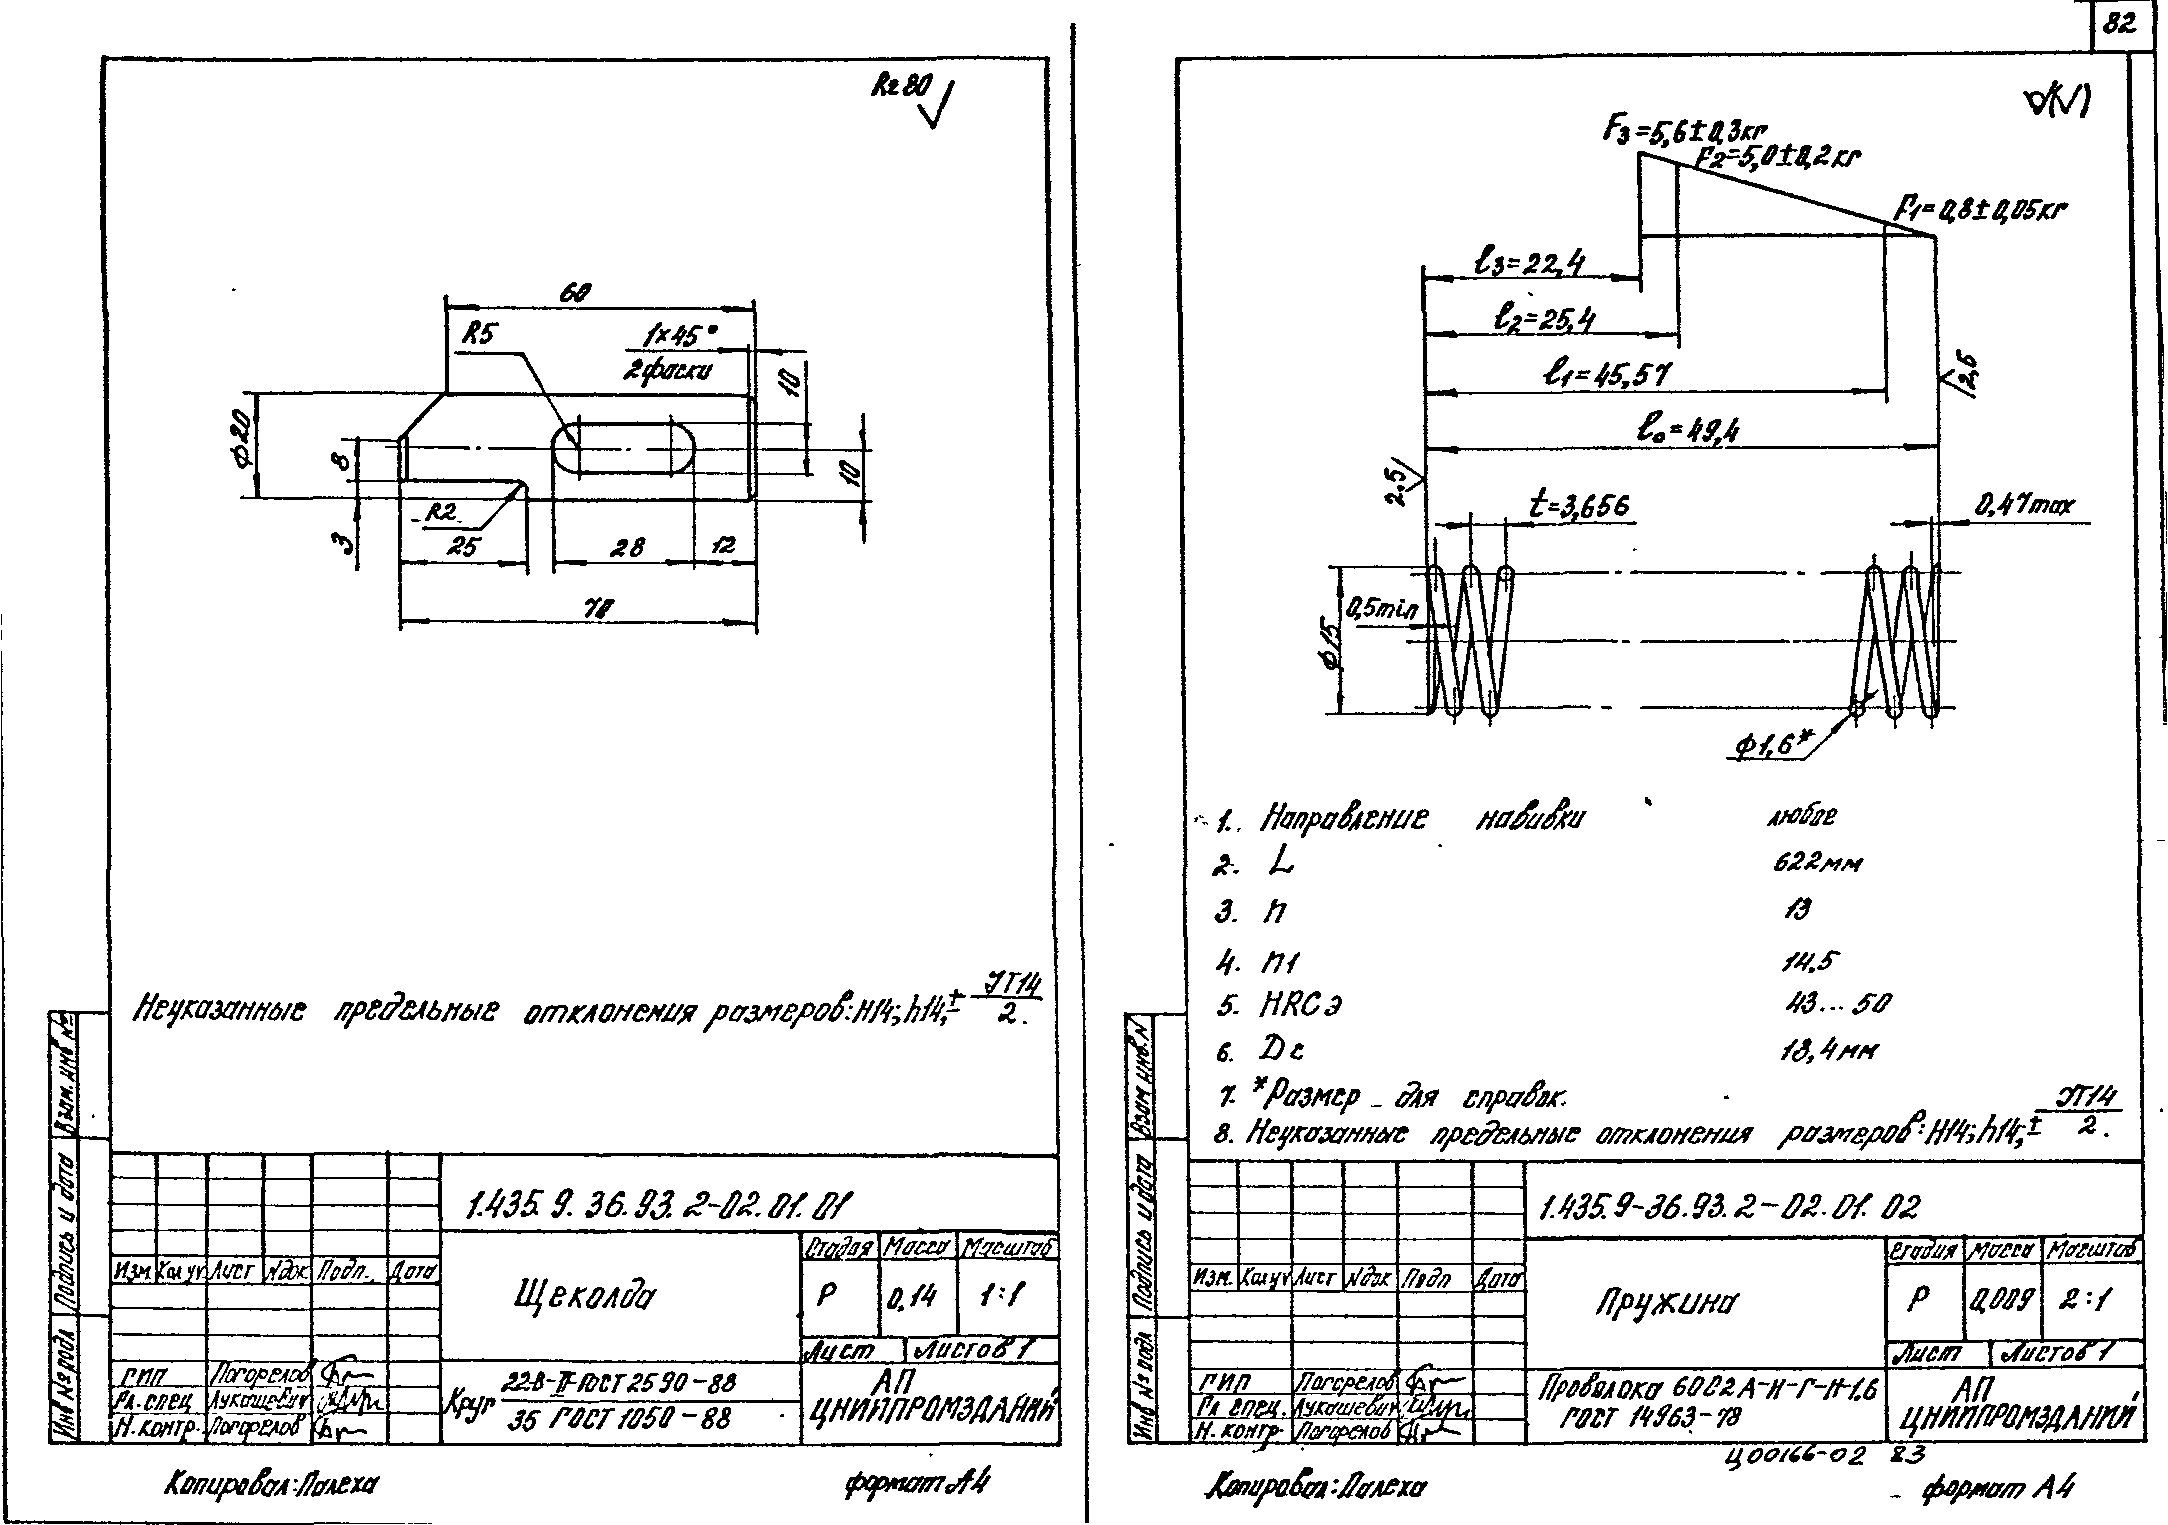 82
Rz 80
60
R5
1×45°
2 фаски
10
ф20
8
10
3
R2
25
28
12
70
Неуказанные предельные отклонения размеров: H14; h14; ± JT14/2.
1.435.9.36.93.2-02.01.01
Изм. Кол.уч Лист №док Подп. Дата
Щеколда
Стадия Масса Масштаб
Р 0,14 1:1
Лист Листов 1
ГИП Погорелов
Гл. спец Лукашевич
Н. контр. Погорелов
Круг
22-В-II ГОСТ 2590-88
35 ГОСТ 1050-88
АП
ЦНИИПРОМЗДАНИЙ
Инв № подл Подпись и дата Взам. инв №
Копировал: Палеха
формат А4
F3=5,6±0,3кг
F2=5,0±0,2кг
F1=0,8±0,05кг
l3=22,4
l2=25,4
l1=45,57
l0=49,4
2,5
2,5
t=3,656
0,47max
0,5min
ф15
ф1,6*
1. Направление навивки любое
2. L 622мм
3. n 13
4. n1 14,5
5. HRCэ 43...50
6. Dс 13,4мм
7. *Размер для справок.
8. Неуказанные предельные отклонения размеров: H14; h14; ± JT14/2.
1.435.9-36.93.2-02.01.02
Изм. Кол.уч Лист №док Подп Дата
Пружина
Стадия Масса Масштаб
Р 0,009 2:1
Лист Листов 1
ГИП Погорелов
Гл. спец. Лукашевич
Н. контр. Погорелов
Проволока 60С2А-Н-Г-Н-1,6
ГОСТ 14963-78
АП
ЦНИИПРОМЗДАНИЙ
Инв № подл Подпись и дата Взам инв. №
Ц00166-02 83
Копировал: Палеха
формат А4